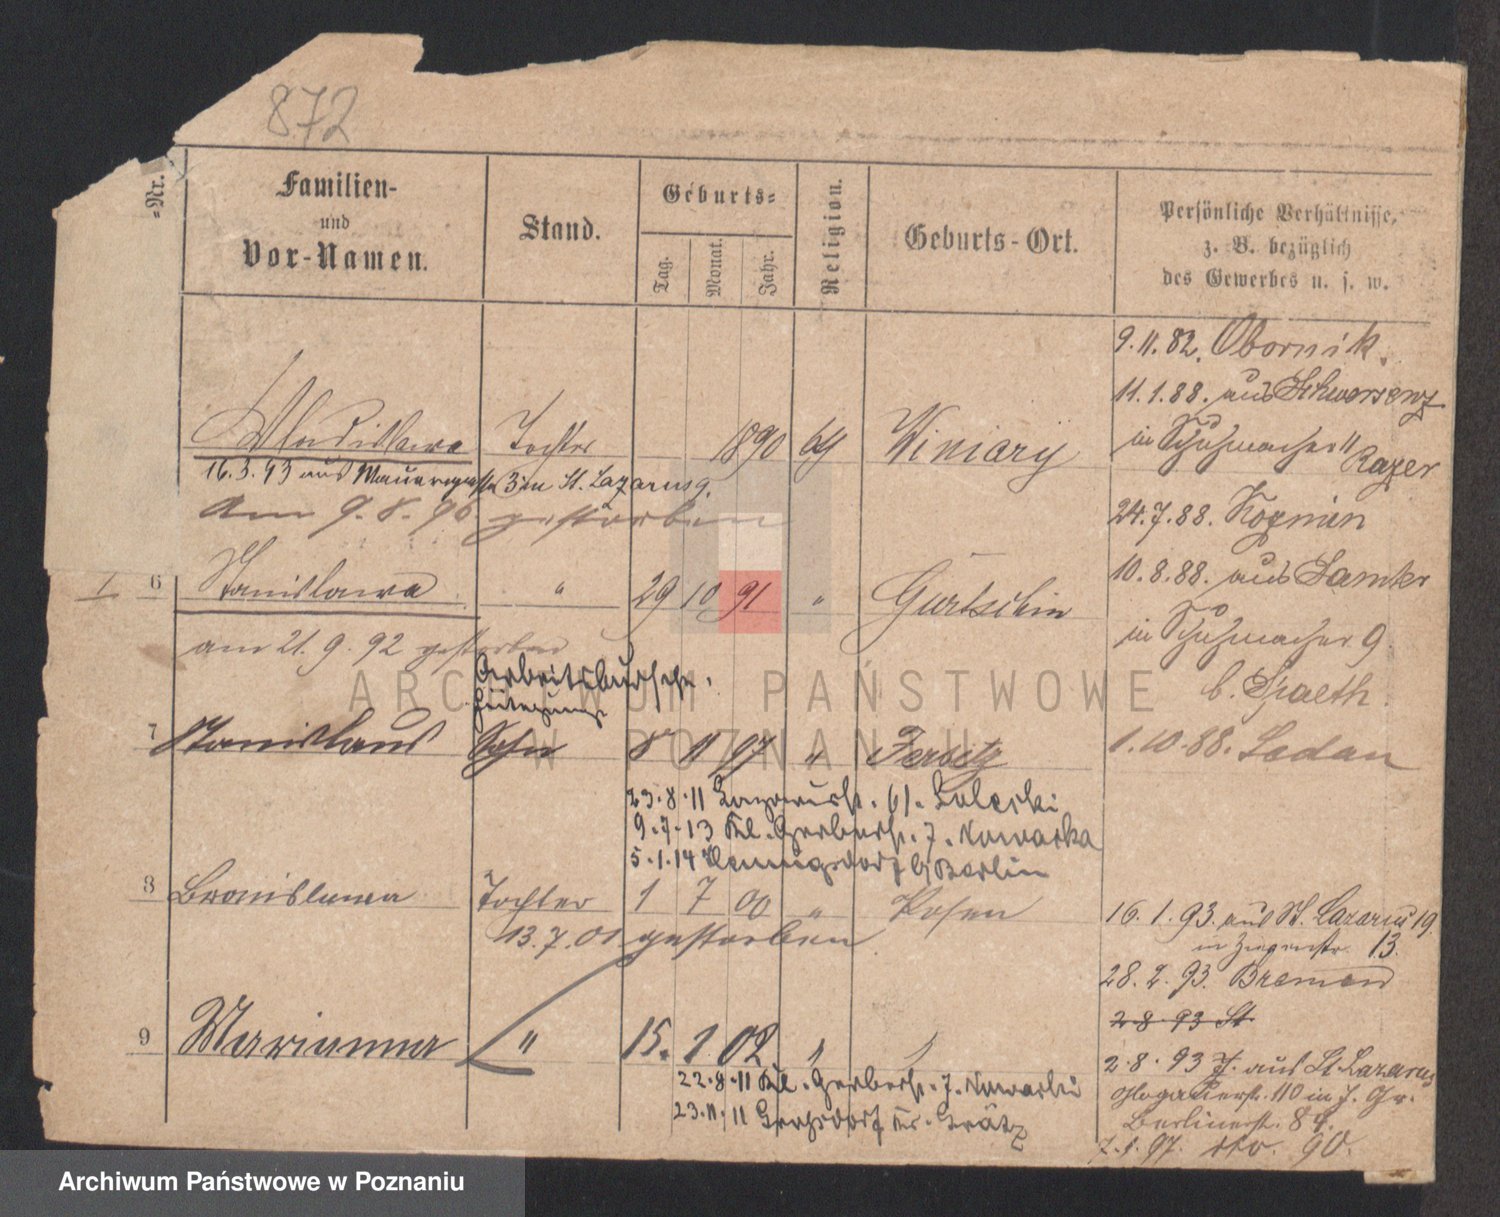 872
-Nr.
Familien-
und
Vor-Namen.
Stand.
Geburts-
Tag.
Monat.
Jahr.
Religion.
Geburts-Ort.
Persönliche Verhältnisse,
z. B. bezüglich
des Gewerbes u. s. w.
9.11.82. Obornik.
11.1.88. aus Schwersenz
in Schuhmacher 11
Wladislawa Tochter 1890 Winiary
16.3.93 aus in St. Lazarus 9.
am 9.8.96 gestorben
24.7.88.
10.8.88. aus Samter
6 Stanislawa " 29 10 91 " Gurtschin
in Schuhmacher 9
am 21.9.92 gestorben
b. Spaeth.
Arbeitsbursche.
7 Stanislaus Sohn 8 11 97 " Jersitz
1.10.88. Sedan
23.8.11 Lazarusstr. 61. Zaleski
9.7.13 Kl. Gerberstr. 7. Nowacka
5.1.14 Hennigsdorf b/Berlin
8 Bronislawa Tochter 1 7 00 " Posen
13.7.01 gestorben
16.1.93. aus St. Lazarus 19.
in Ziegenstr. 13.
28.2.93. Bremen
2.8.93 St.
9 Marianna " 15. 1. 02 " "
2.8.93 J. aus St. Lazarus
22.8.11 Kl. Gerberstr. 7. Nowacki
Glogauerstr. 110 in J. Gr.
23.11.11 Kr. Grätz
Berlinerstr. 89.
7.1.97. 90.
ARCHIWUM PAŃSTWOWE
W POZNANIU
Archiwum Państwowe w Poznaniu